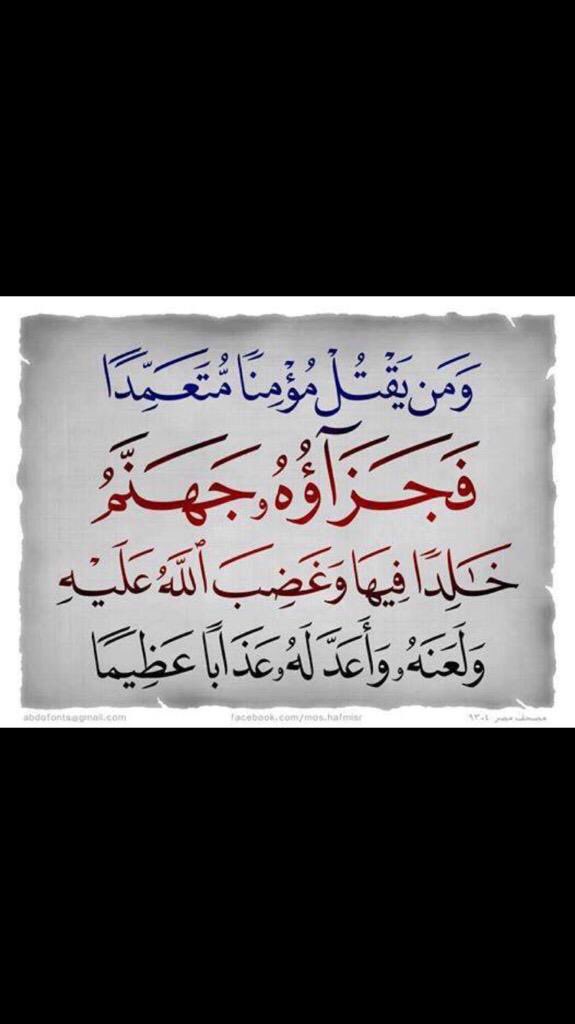 وَمَن يَقْتُلْ مُؤْمِنًا مُّتَعَمِّدًا
فَجَزَآؤُهُۥ جَهَنَّمُ
خَٰلِدًا فِيهَا وَغَضِبَ ٱللَّهُ عَلَيْهِ
وَلَعَنَهُۥ وَأَعَدَّ لَهُۥ عَذَابًا عَظِيمًا
abdofonts@gmail.com facebook.com/mos.hafmisr مصحف مصر ٩٣٠٤